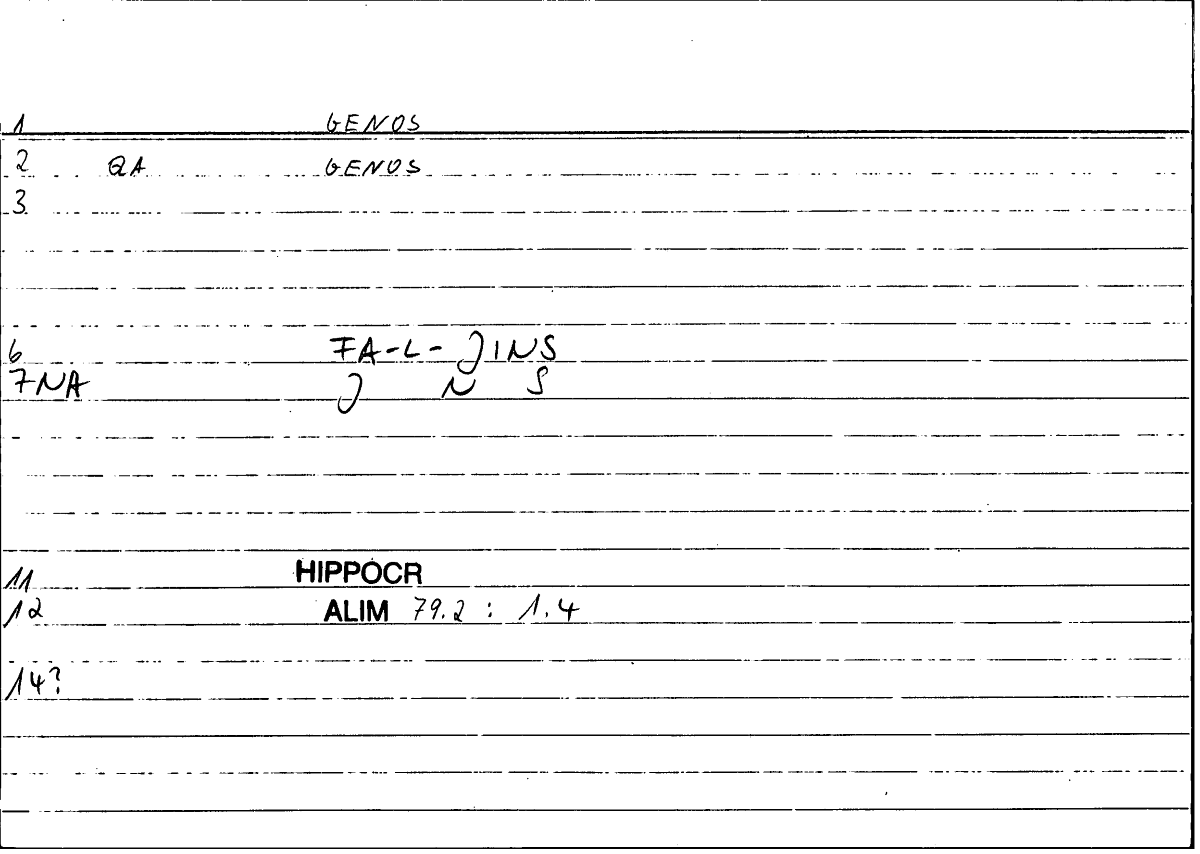 1 GENOS
2 QA GENOS
3
6 FA-L-JINS
7NA J N S
11 HIPPOCR
12 ALIM 79.2 : 1.4
14?